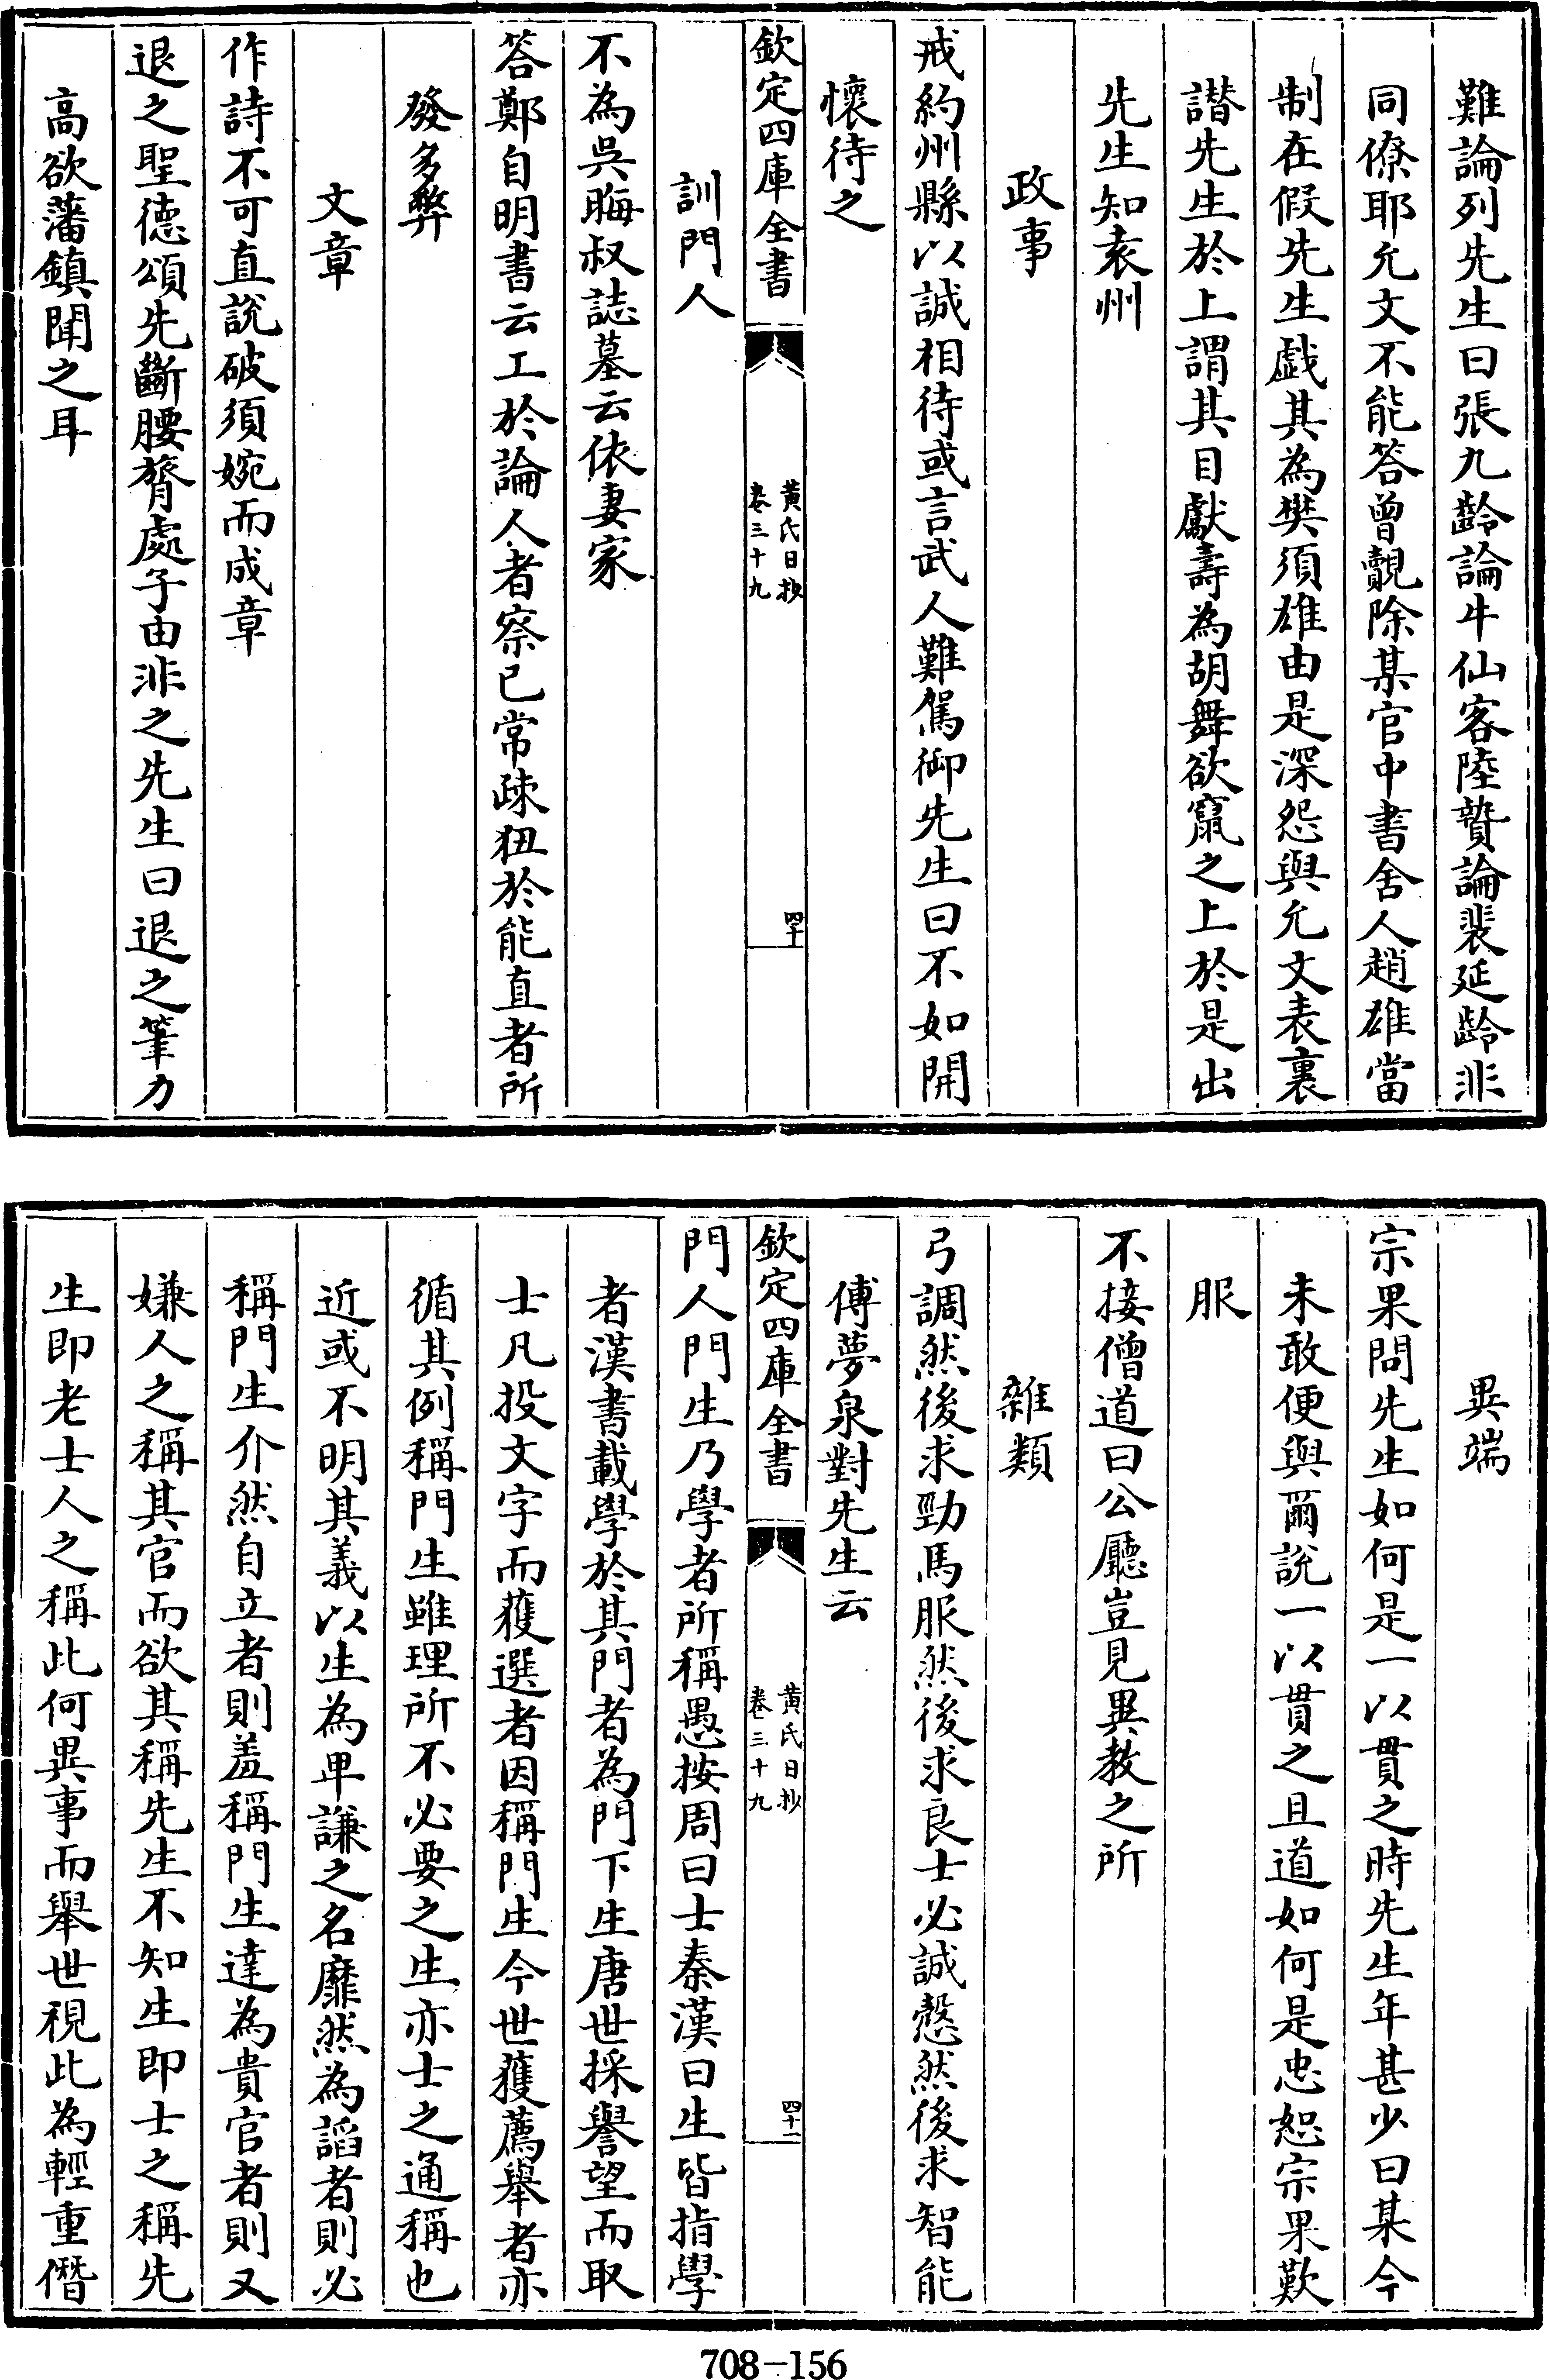 難論列先生曰張九齡論牛仙客陸贄論裴延齡非
同僚耶允文不能答曾覿除某官中書舍人趙雄當
制在假先生戯其為樊須雄由是深怨與允文表裏
譖先生於上謂其目獻壽為胡舞欲竄之上於是出
先生知袁州
政事
戒約州縣以誠相待或言武人難駕御先生曰不如開
懷待之
欽定四庫全書
黃氏日抄
卷三十九
四十
訓門人
不為吳晦叔誌墓云依妻家
答鄭自明書云工於論人者察已常疎狃於能直者所
發多弊
文章
作詩不可直說破須婉而成章
退之聖德頌先斷腰膂處子由非之先生曰退之筆力
高欲藩鎮聞之耳
異端
宗果問先生如何是一以貫之時先生年甚少曰某今
未敢便與爾說一以貫之且道如何是忠恕宗果歎
服
不接僧道曰公廳豈見異教之所
雜類
弓調然後求勁馬服然後求良士必誠慤然後求智能
傅夢泉對先生云
欽定四庫全書
黃氏日抄
卷三十九
四十一
門人門生乃學者所稱愚按周曰士秦漢曰生皆指學
者漢書載學於其門者為門下生唐世採譽望而取
士凡投文字而獲選者因稱門生今世獲薦舉者亦
循其例稱門生雖理所不必要之生亦士之通稱也
近或不明其義以生為卑謙之名靡然為謟者則必
稱門生介然自立者則羞稱門生達為貴官者則又
嫌人之稱其官而欲其稱先生不知生即士之稱先
生即老士人之稱此何異事而舉世視此為輕重僭
708-156